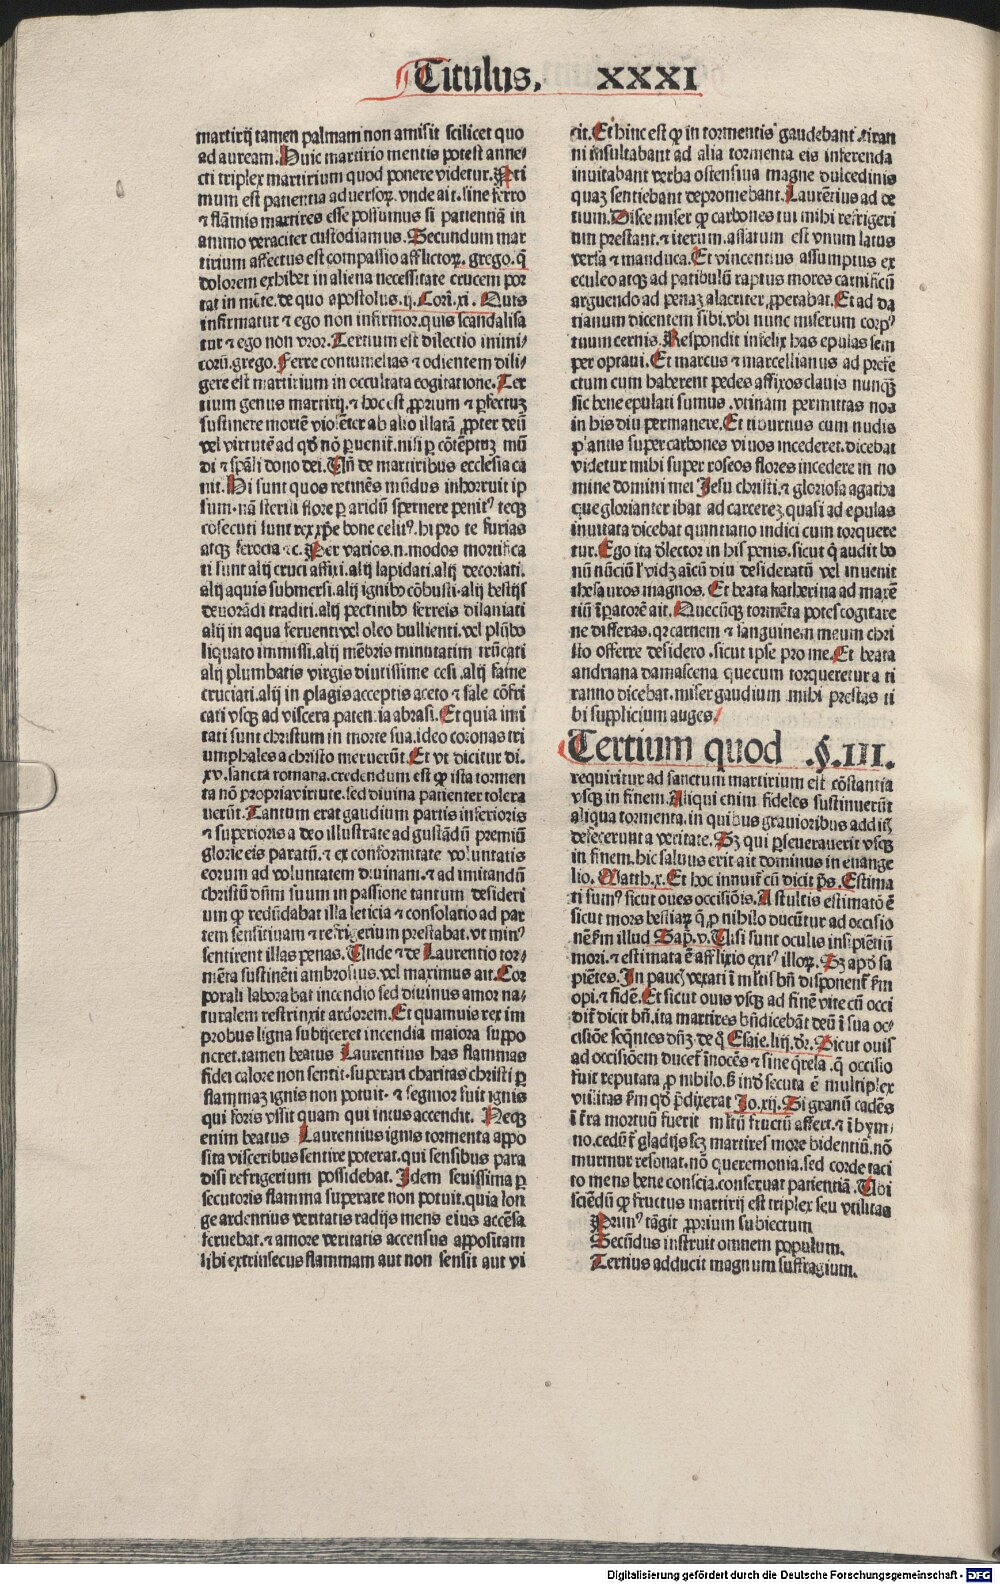 Titulus. XXXI
martirij tamen palmam non amisit scilicet quo
ad auream. Huic martirio mentis potest anne⸗
cti triplex martirium quod ponere videtur. Pri
mum est patientia aduersoꝝ. vnde ait. sine ferro
⁊ flāmis martires esse possumus si patientiā in
animo veraciter custodiamus. Secundum mar
tirium affectus est compassio afflictoꝝ. grego. q̄
dolorem exhibet in aliena necessitate crucem por
tat in mēte. de quo apostolus. ij. Corī. xi. Quis
infirmatur ⁊ ego non infirmor. quis scandalisa
tur ⁊ ego non vror. Tertium est dilectio inimi⸗
corū. grego. Ferre contumelias ⁊ odientem dili⸗
gere est martirium in occultata cogitatione. Ter
tium genus martirij. ⁊ hoc est ꝓprium ⁊ ꝑfectuꝫ
sustinere mortē violēter ab alio illatā ꝓpter deū
vel virtutē ad qd̄ nō ꝑuenit̄. nisi ꝑ cōtēptuꝫ mū
di ⁊ spāli dono dei. Vn̄ de martiribus ecclesia ca
nit. Hi sunt quos retinēs mūdus inhorruit ip
sum. nā sterili flore ꝑ aridū spernere penitꝰ teqꝫ
cōsecuti sunt rex xp̄e bone celitꝰ. hi pro te furias
atqꝫ ferocia ⁊c. Per varios. n. modos mortifica
ti sunt alij cruci affixi. alij lapidati. alij decoriati.
alij aquis submersi. alij ignibꝰ cōbusti. alij bestijs
deuorādi traditi. alij pectinibꝰ ferreis dilaniati
alij in aqua feruenti vel oleo bullienti. vel plūbo
liquato immissi. alij mēbris minutatim trūcati
alij plumbatis virgis diutissime cesi. alij fame
cruciati. alij in plagis acceptis aceto ⁊ sale cōfri
cati vsqꝫ ad viscera patentia abrasi. Et quia imi
tati sunt christum in morte sua. ideo coronas tri
umphales a christo meruerūt. Et vt dicitur di.
xv. sancta romana. credendum est ꝙ ista tormen
ta nō propria virtute. sed diuina patienter tolera
uerūt. Tantum erat gaudium partis inferioris
⁊ superioris a deo illustrate ad gustādū premiū
glorie eis paratū. ⁊ ex conformitate voluntatis
eorum ad voluntatem diuinam. ⁊ ad imitandū
christū dn̄m suum in passione tantum desideri
um ꝙ redūdabat illa leticia ⁊ consolatio ad par
tem sensitiuam ⁊ refrigerium prestabat. vt minꝰ
sentirent illas penas. Unde ⁊ de Laurentio tor⸗
mēta sustinēti ambrosius. vel maximus ait. Cor
porali laborabat incendio sed diuinus amor na⸗
turalem restrinxit ardorem. Et quamuis rex im
probus ligna subijceret incendia maiora suppo
neret. tamen beatus Laurentius has flammas
fidei calore non sentit. superari charitas christi ꝑ
flammaꝫ ignis non potuit. ⁊ segnior fuit ignis
qui foris vssit quam qui intus accendit. Neqꝫ
enim beatus Laurentius ignis tormenta appo
sita visceribus sentire poterat. qui sensibus para
disi refrigerium possidebat. Idem seuissima ꝑ
secutoris flamma superare non potuit. quia lon
ge ardentius veritatis radijs mens eius accēsa
feruebat. ⁊ amore veritatis accensus appositam
sibi extrinsecus flammam aut non sensit aut vi
cit. Et hinc est ꝙ in tormentis gaudebant. tiran
ni insultabant ad alia tormenta eis inferenda
inuitabant verba ostensiua magne dulcedinis
quaꝫ sentiebant depromebant. Laurētius ad de
tium. Disce miser ꝙ carbones tui mihi refrigeri
um prestant. ⁊ iterum. assatum est vnum latus
versa ⁊ manduca. Et vincentius assumptus ex
eculeo atqꝫ ad patibulū raptus mores carnificū
arguendo ad penaꝫ alacriter ꝓperabat. Et ad da
tianum dicentem sibi. vbi nunc miserum corpꝰ
tuum cernis. Respondit infelix has epulas sem
per optaui. Et marcus ⁊ marcellianus ad prefe
ctum cum haberent pedes affixos clauis nunqꝫ
sic bene epulati sumus. vtinam permittas nos
in his diu permanere. Et tiburtius cum nudis
plantis super carbones viuos incederet. dicebat
videtur mihi super roseos flores incedere in no
mine domini mei Jesu christi. ⁊ gloriosa agatha
que glorianter ibat ad carcereꝫ. quasi ad epulas
inuitata dicebat quintiano iudici cum torquere
tur. Ego ita dl̄ector in his penis. sicut q̄ audit bo
nū nūciū l̓ vidꝫ aīcū diu desideratū vel inuenit
thesauros magnos. Et beata katherina ad maxē
tiū īpatorē ait. Quecūqꝫ tormēta potes cogitare
ne differas. qꝛ carnem ⁊ sanguinem meum chri
sto offerre desidero. sicut ipse pro me. Et beata
andriana damascena que cum torqueretur a ti
ranno dicebat. miser gaudium mihi prestas ti
bi supplicium auges
Tertium quod .§. III.
requiritur ad sanctum martirium est cōstantia
vsqꝫ in finem. Aliqui enim fideles sustinuerūt
aliqua tormenta. in quibus grauioribus addit̄
defecerunt a veritate. Sꝫ qui ꝑseuerauerit vsqꝫ
in finem. hic saluus erit ait dominus in euange
lio. Matth. x. Et hoc innuit̄ cū dicit p̄s. Estima
ti sumꝰ sicut oues occisiōis. A stultis estimatō ē
sicut mors bestiaꝝ q̄ ꝓ nihilo ducūtur ad occisio
nē fm illud Sap̄. v. Visi sunt oculis insipiētiū
mori. ⁊ estimata ē afflixio exitꝰ illoꝝ. Sꝫ apd̓ sa
piētes. In paucꝭ vexati ī mltis bn̄ disponent̄ fm
opi. ⁊ fidē. Et sicut ouis vsqꝫ ad finē vite cū occi
dit̄ dicit bn̄. ita martires bn̄dicebāt deū ī sua oc⸗
cisiōe seq̄ntes dn̄ꝫ. de q̊ Esaie. liij. dr̄. Sicut ouis
ad occisiōem ducet̄ īnocēs ⁊ sine q̄rela. q̄ occisio
fuit reputata ꝓ nihilo. ß ind̓ secuta ē multiplex
vtilitas fm qd̓ p̄dixerat Jo. xij. Si granū cadēs
ī t̄ra mortuū fuerit mltū fructū affert. ⁊ ī hym⸗
no. cedūt̄ gladijs scꝫ martires more bidentiū. nō
murmur resonat. nō queremonia. sed corde taci
to mens bene conscia. conseruat patientiā. Ubi
sciēdū ꝙ fructus martirij est triplex seu vtilitas
Primꝰ tāgit ꝓprium subiectum
Secūdus instruit omnem populum.
Tertius adducit magnum suffragium.
Digitalisierung gefördert durch die Deutsche Forschungsgemeinschaft - DFG